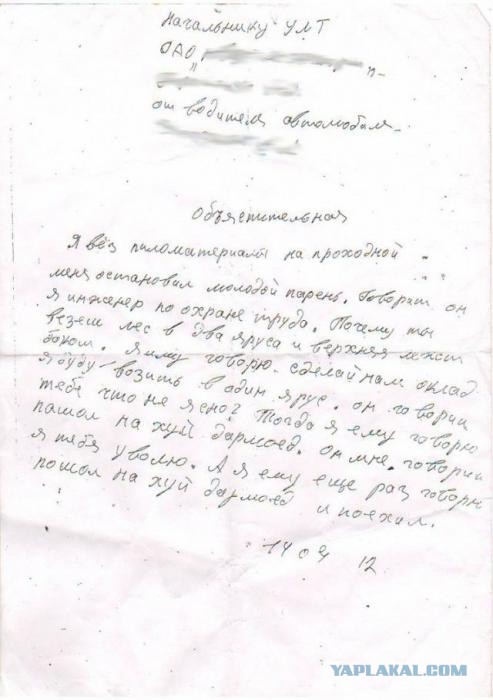 Начальнику УЛТ
ОАО "
п-
от водителя автомобиля
Объяснительная
Я вёз пиломатериалы на проходной
меня остановил молодой парень. Говорит он
я инженер по охране труда. Почему ты
везеш лес в два яруса и верхняя лежит
боком. Я иму говорю. сделай нам оклад
я буду возить в один ярус. он говорит
тебе что не ясно? Тогда я ему говорю
пашол на хуй дармоед. он мне говорит
я тебя уволю. А я ему еще раз говорю
пошол на хуй дармоед и поехал.
14 04 12
YAPLAKAL.COM